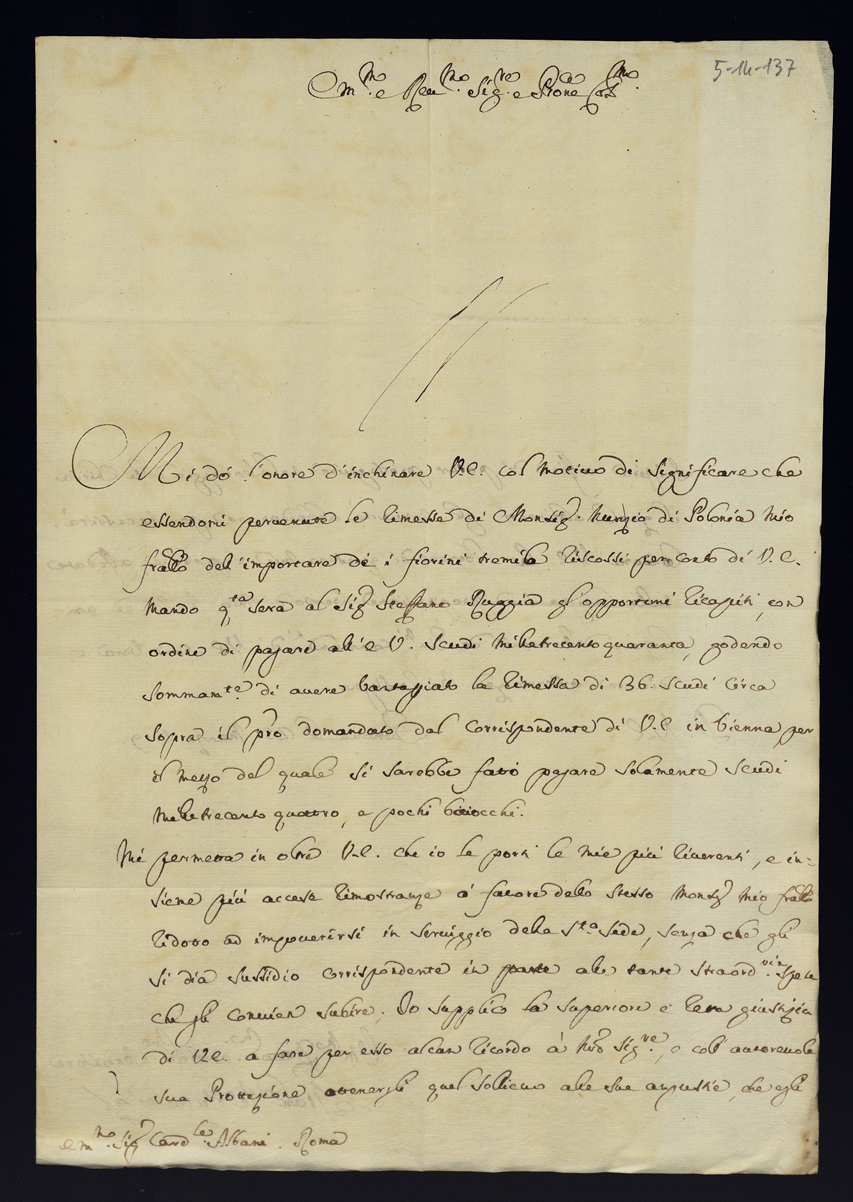 5-14-137
Em.mo e Rev.mo Sig.re e P̃rone Col.mo
Mi dó l'onore d'inchinare V.E. col motivo di significare che
essendomi pervenute le rimesse di Monsig.r Nunzio di Polonia mio
fratello dell'importare de i fiorini tremila riscossi per conto di V.E.
mando q.ta sera al Sig.r Steffano Ruggia gl'opportuni ricapiti, con
ordine di pagare all'E.V. scudi milletrecentoquaranta, godendo
sommam.te di avere vantaggiato la rimessa di 36. scudi circa
sopra il p̃ro domandato dal corrispondente di V.E. in Vienna, per
il mezzo del quale si sarebbe fatto pagare solamente scudi
milletrecento quattro, e pochi baiocchi.
Mi permetta in oltre V.E. che io le porti le mie più riverenti, e in=
sieme più accese rimostranze à favore dello stesso Mons.r mio fratello
ridotto ad impoverirsi in servizio della S.ta Sede, senza che gli
si dia sussidio corrispondente in parte alle tante straord.rie spese
che gli convien subire. Io supplico la superiore e retta giustizia
di V.E. a fare per esso alcun ricordo à N̄ro Sig.re, e coll'autorevole
sua Protezione ottenergli quel sollievo alle sue angustie, che egli
Em.mo Sig.r Card.le Albani . Roma